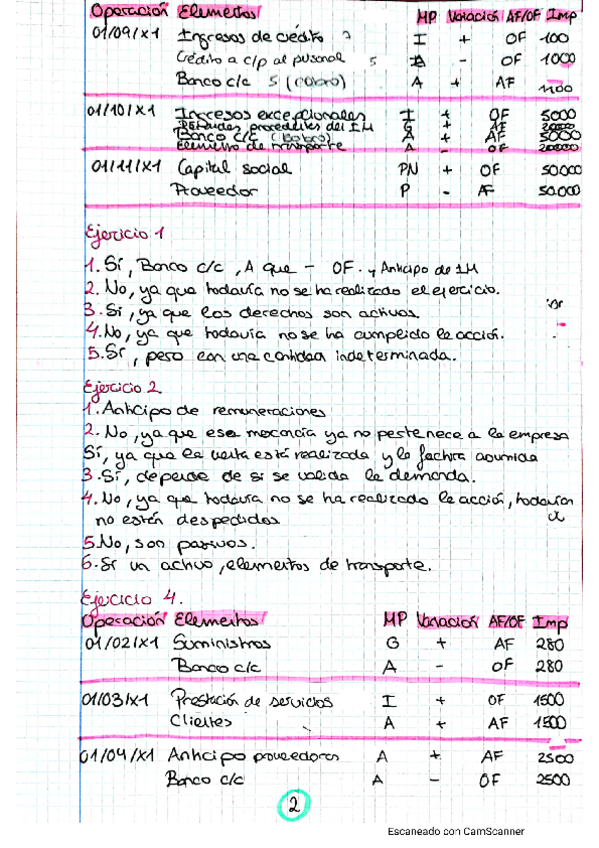 Operación Elementos MP Variación AF/OF Imp
01/09/X1 Ingresos de crédito I + OF 100
Crédito a c/p al personal 5 A - OF 1000
Banco c/c 5 (cobro) A + AF 1100
01/10/X1 Ingresos excepcionales I + OF 5000
procedentes del IM G + AF 20000
Banco c/c (cobro) A + AF 5000
Elemento de transporte A - OF 20000
01/11/X1 Capital social PN + OF 50.000
Proveedor P - AF 50.000
Ejercicio 1
1. Sí, Banco c/c, A que - OF. y Anticipo de IM
2. No, ya que todavía no se ha realizado el ejercicio.
3. Sí, ya que los derechos son activos.
4. No, ya que todavía no se ha cumplido la acción.
5. Sí, pero con una cantidad indeterminada.
Ejercicio 2
1. Anticipo de remuneraciones
2. No, ya que esa mercancía ya no pertenece a la empresa
Sí, ya que la venta está realizada y la factura asumida
3. Sí, depende de si se valida la demanda.
4. No, ya que todavía no se ha realizado la acción, todavía
no están despedidos
5. No, son pasivos.
6. Sí un activo, elementos de transporte.
Ejercicio 4.
Operación Elementos MP Variación AF/OF Imp
01/02/X1 Suministros G + AF 280
Banco c/c A - OF 280
01/03/X1 Prestación de servicios I + OF 1500
Clientes A + AF 1500
01/04/X1 Anticipo proveedores A + AF 2500
Banco c/c A - OF 2500
2
Escaneado con CamScanner